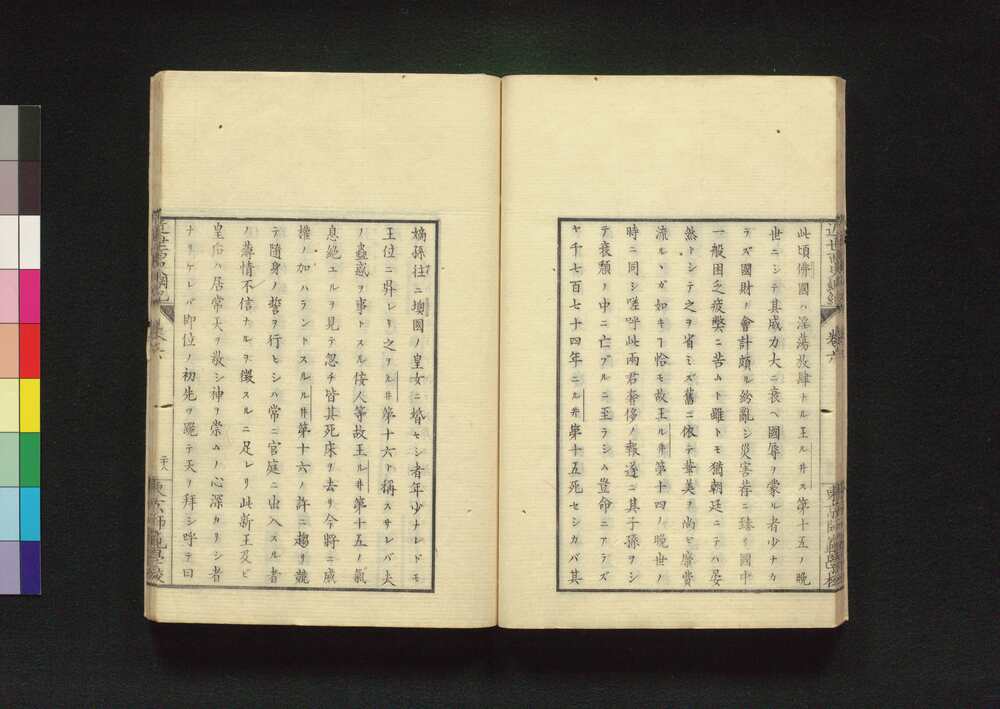 此頃佛國ハ淫蕩放肆ナル王ルヰス第十五ノ晩
世ニシテ其威力大ニ衰ヘ國辱ヲ蒙ル者少ナカ
ラズ國財ノ會計頗ル紛亂シ災害荐ニ臻リ國中
一般困乏疲弊ニ苦ムト雖トモ猶朝廷ニテハ晏
然トシテ之ヲ省ミズ舊ニ依テ華美ヲ尚ビ靡費
流ルヽガ如キヿ恰モ故王ルヰ第十四ノ晩世ノ
時ニ同シ嗟呼此兩君奢侈ノ報遂ニ其子孫ヲシ
テ衰頽ノ中ニ亡ブルニ至ラシム豈命ニアラズ
ヤ千七百七十四年ニルヰ第十五死セシカバ其
嫡孫往ニ墺國ノ皇女ニ婚セシ者年少ナレドモ
王位ニ昇レリ之ヲルヰ第十六ト稱スサレバ夫
ノ蠱惑ヲ事トスル佞人等故王ルヰ第十五ノ氣
息絶エルヲ見テ忽チ皆其死床ヲ去リ今將ニ威
權ノ加ハラントスルルヰ第十六ノ許ニ趨リ競
テ隨身ノ誓ヲ行ヒシハ常ニ官庭ニ出入スル者
ノ薄情不信ナルヲ徴スルニ足レリ此新王及ビ
皇后ハ居常天ヲ敬シ神ヲ崇ムノ心深カリシ者
ナリケレバ即位ノ初先ヅ跪テ天ヲ拜シ呼テ曰
卷六